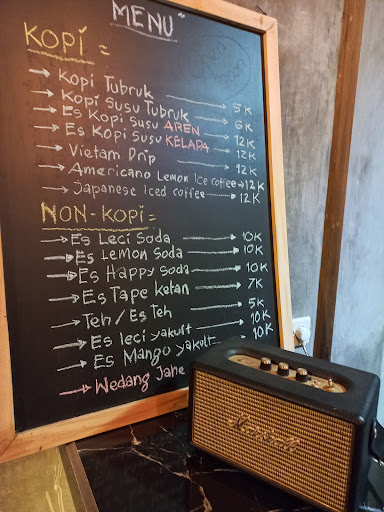 MENU
KOPI =
→ Kopi Tubruk 5K
→ Kopi Susu Tubruk 6K
→ Es Kopi Susu AREN 12K
→ Es Kopi Susu KELAPA 12K
→ Vietam Drip 12K
→ Americano Lemon Ice coffee → 12K
→ Japanese Iced coffee 12K
NON-KOPI =
→ Es Leci Soda 10K
→ Es Lemon Soda 10K
→ Es Happy Soda 10K
→ Es Tape ketan 7K
→ Teh / Es Teh 5K
→ Es leci yakult 10K
→ Es Mango yakult 10K
→ Wedang Jahe
Marshall